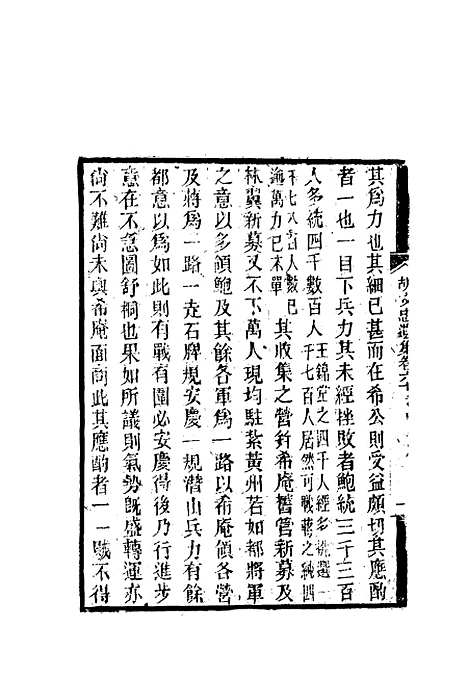 胡文忠遺集卷六十
其爲力也其細已甚而在希公則受益頗切其應酌
者一也一目下兵力其未經挫敗者鮑統三千三百
人多統四千數百人王錦堂之四千人經多挑選一千七百人居然可戰蔣之純四
千七八百人數已逾萬力已不單其收集之營針希庵舊管新募及
林翼新募又不下萬人現均駐紮黃州若如都將軍
之意以多領鮑及其餘各軍爲一路以希庵領各營
及蔣爲一路一走石牌規安慶一規潛山兵力有餘
都意以爲如此則有戰有圍必安慶得後乃行進步
意在不急圖舒桐也果如所議則氣勢旣盛轉運亦
尚不難尚未與希庵面商此其應酌者一一職不得